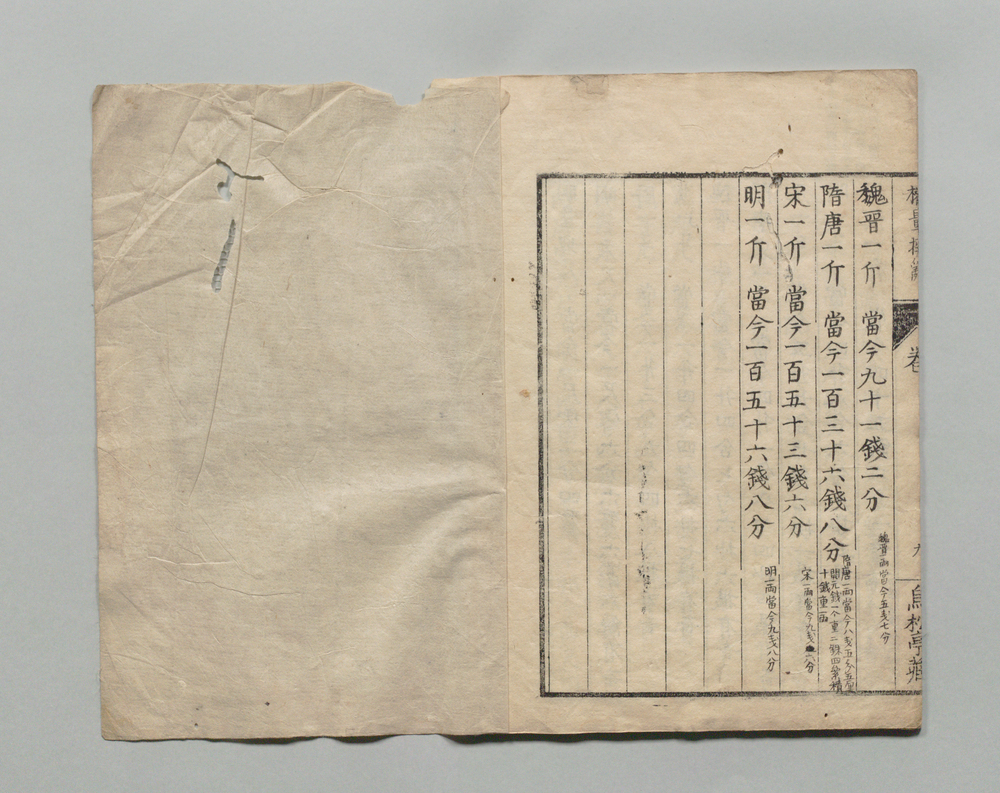 權量撥亂 卷 九 烏松亭藏
魏晋一斤 當今九十一錢二分
魏晋一兩當今五戔七分
隋唐一斤 當今一百三十六錢八分
隋唐一兩當今八戔五分五厘
開元錢一个重二銖四絫積
十錢重一兩
宋一斤 當今一百五十三錢六分
宋一兩當今九戔六分
明一斤 當今一百五十六錢八分
明一兩當今九戔八分